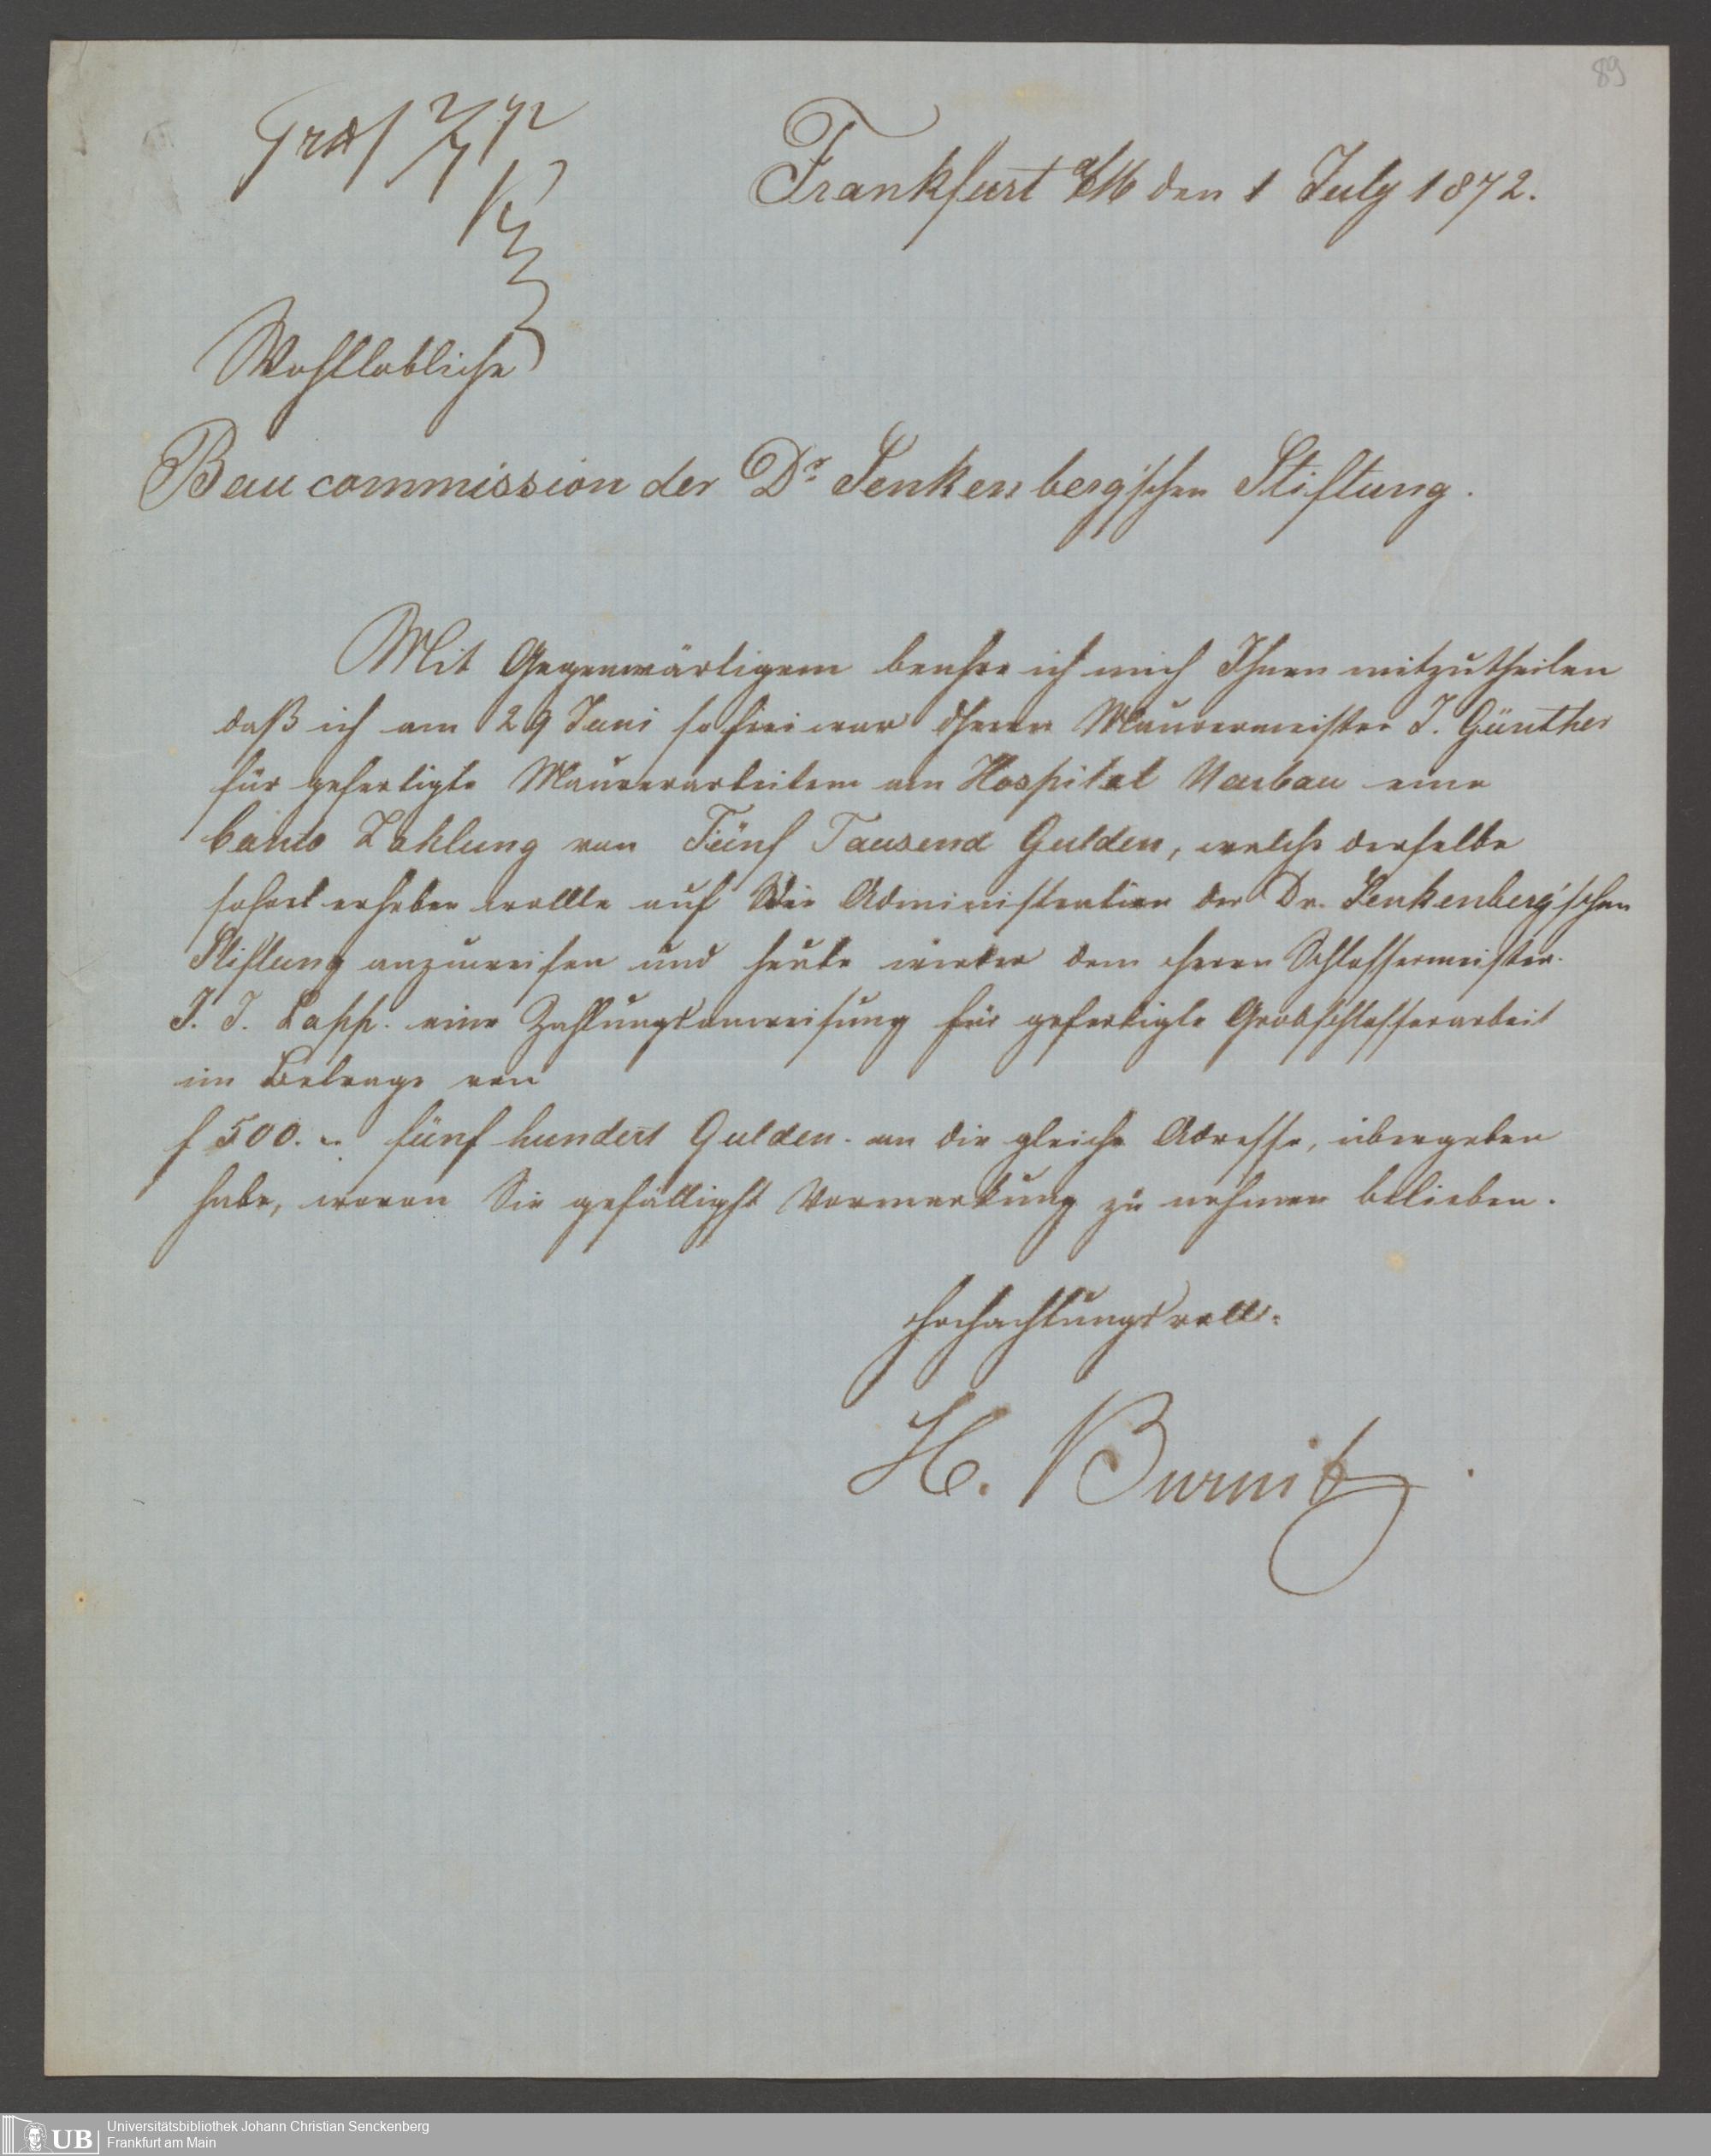 89
Frankfurt a/M den 1 July 1872.
Wohllobliche
Baucommission der Dr. Senkenberg'schen Stiftung.
Mit Gegenwärtigem beehre ich mich Ihnen mitzutheilen
daß ich am 29 Juni so frei war Herrn Maurermeister J. Günther
für gefertigte Maurerarbeiten am Hospital Neubau eine
Zahlung von Fünf Tausend Gulden, welche derselbe
sofort erheben wollte auf die Administration der Dr. Senkenberg'schen
Stiftung anzuweisen und heute wieder dem Herrn Schlossermeister
J. J. Lapp. eine Zahlungsanweisung für gefertigte Grobschlosserarbeit
im Betrage von
f 500. – fünf hundert Gulden. an die gleiche Adresse, übergeben
habe, wovon Sie gefälligst Vormerkung zu nehmen belieben.
Hochachtungsvoll
H. Burnitz
UB
Universitätsbibliothek Johann Christian Senckenberg
Frankfurt am Main